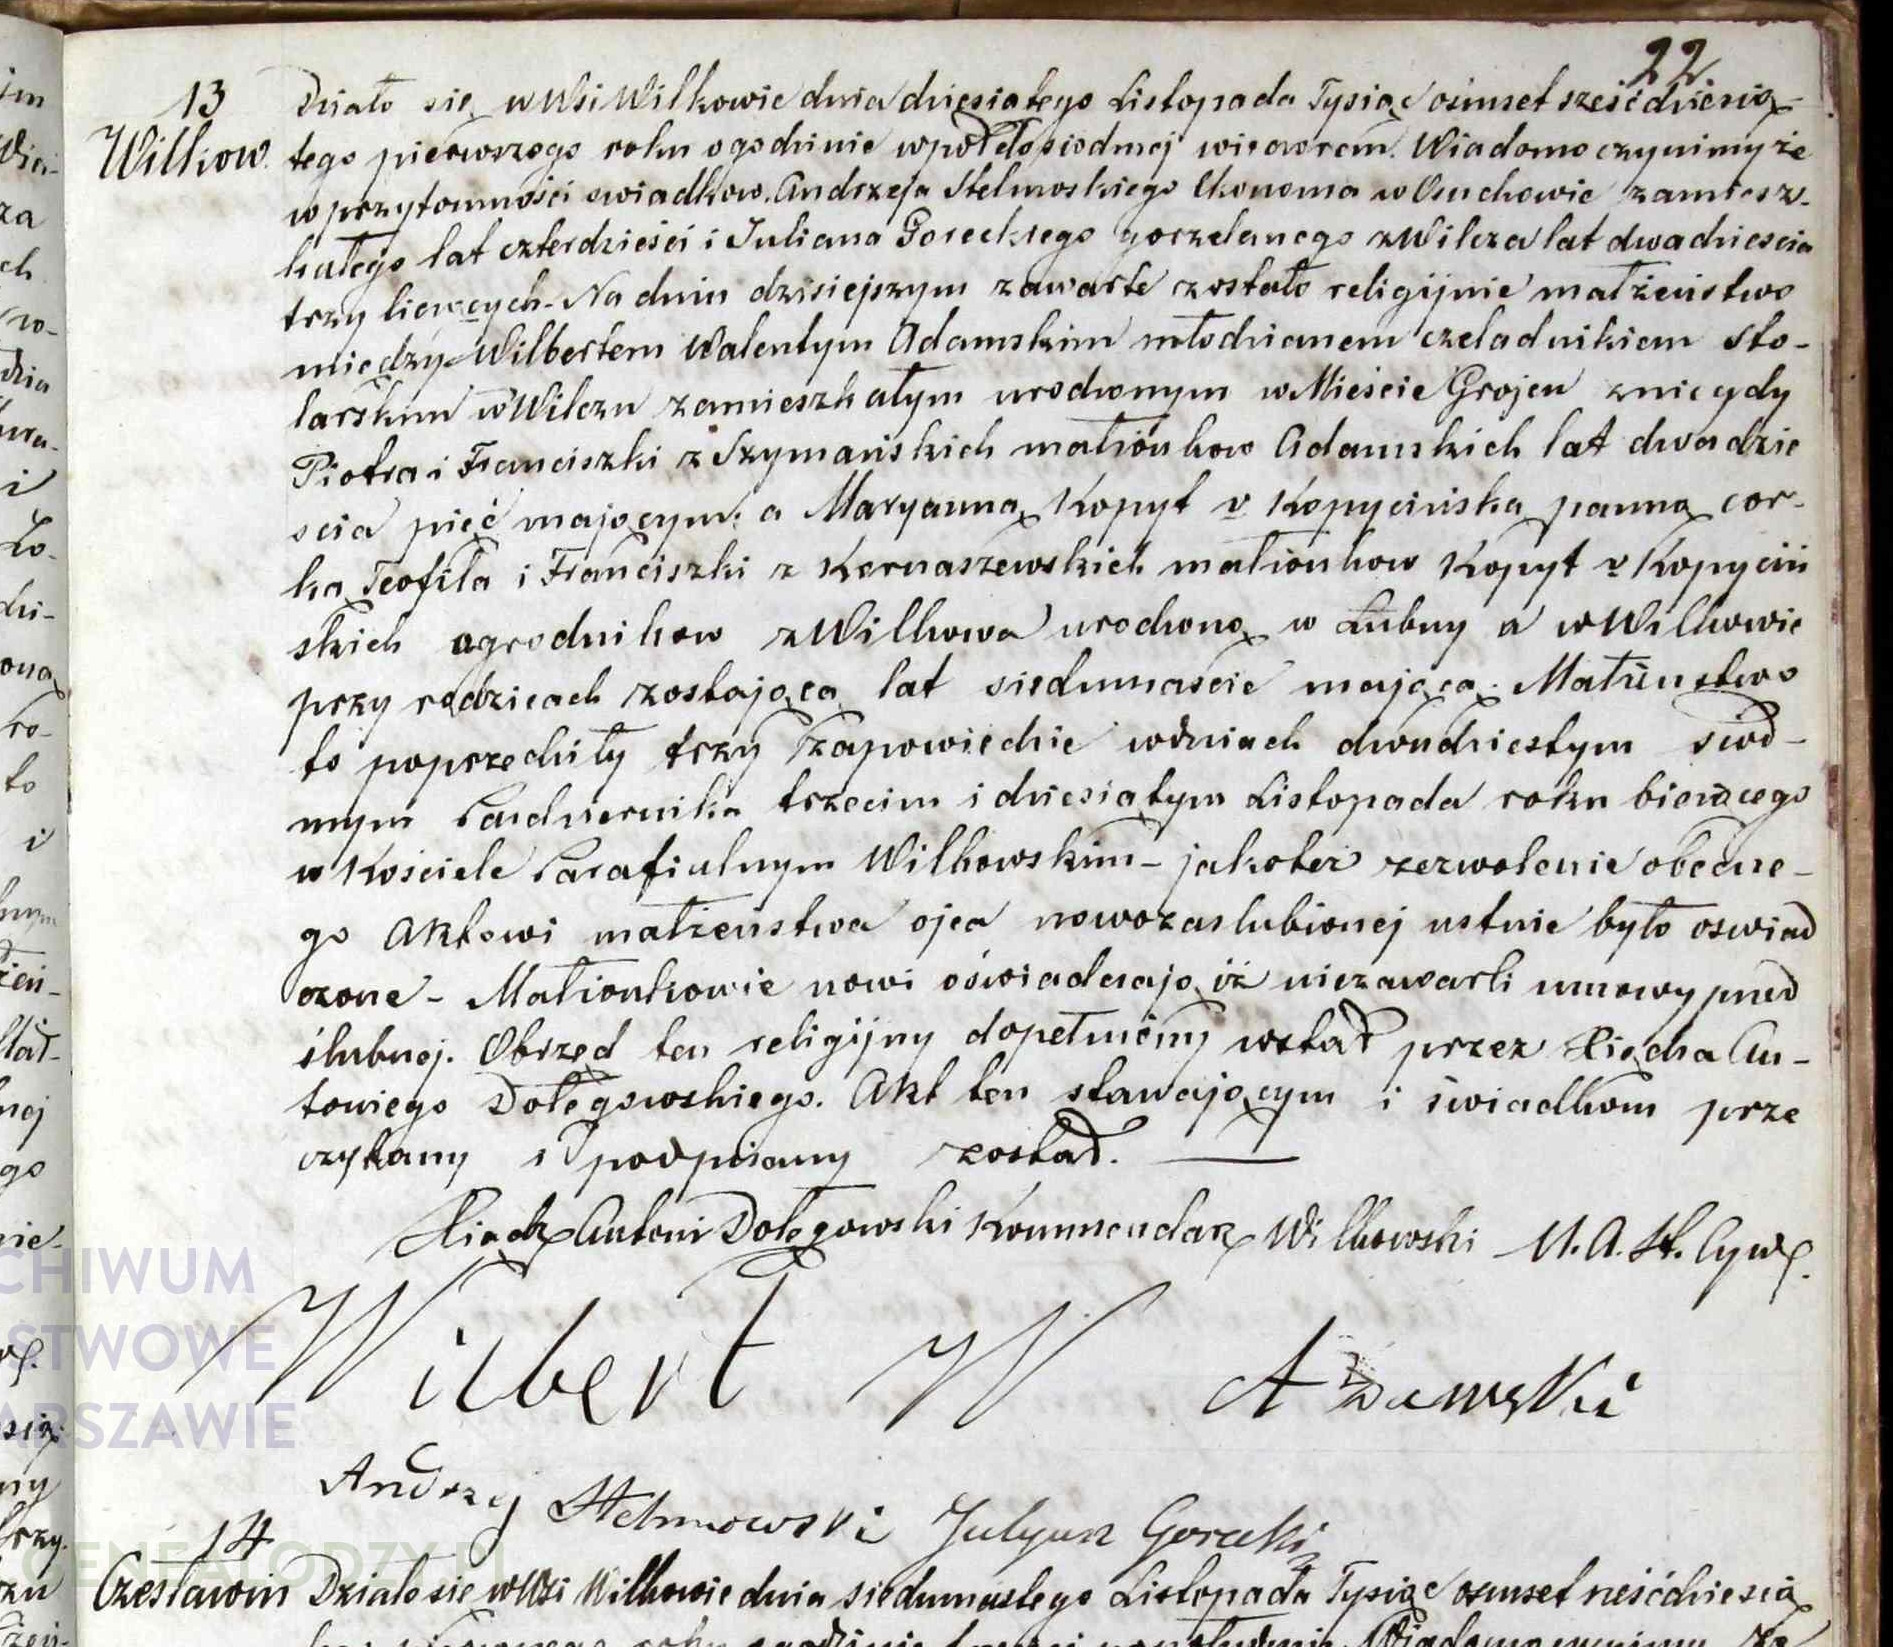 22
13
Wilkow.
Działo się w Wsi Wilkowie dnia dziesiątego Listopada Tysiąc osmset sześćdziesią-
tego pierwszego roku o godzinie wpół do siodmej wieczorem. Wiadomo czynimy że
w przytomności swiadkow. Andrzeja Stelmoskiego Ekonoma w Osuchowie zamiesz-
kałego lat czterdzieści i Juliana Goreckiego gorzelanego z Wilcza lat dwadziescia
trzy liczących. Na dniu dzisiejszym zawarte zostało religijnie małżeństwo
między Wilbertem Walentym Adamskim młodzianem czeladnikiem sto-
larskim w Wilczu zamieszkałym urodzonym w Mieście Grojcu z niegdy
Piotra i Franciszki z Szymańskich małżonkow Adamskich lat dwadzie
scia pięć mającym: a Maryanną Kopyt v Kopycińską panną cor-
ką Teofila i Franciszki z Karnaszewskich małżonkow Kopyt v Kopyciń
skich ogrodnikow z Wilkowa urodzoną w Łubny a w Wilkowie
przy rodzicach zostającą lat siedmnaście mającą. Małżenstwo
to poprzedziły trzy zapowiedzie w dniach dwudziestym siod-
mym Pazdziernika trzecim i dziesiątym Listopada roku bieżącego
w Kosciele Parafialnym Wilkowskim - jakoteż zezwolenie obecne-
go Aktowi małżeństwa ojca nowozaslubionej ustnie było oswiad
czone - Małżonkowie nowi oświadczają iż niezawarli umowy przed
ślubnej. Obrzęd ten religijny dopełniony został przez Xiędza An-
toniego Dołęgowskiego. Akt ten stawającym i świadkom prze
czytany i podpisany został.
Xiądz Antoni Dołęgowski Kommendarz Wilkowski U.A.St. Cyw.
Wilbert W Adamski
Andrzej Stelmowski Julyan Gorecki
14
Czesławin
Działo się w Wsi Wilkowie dnia siedmnastego Listopada Tysiąc osmset sześćdziesią
ARCHIWUM
PAŃSTWOWE
W WARSZAWIE
GENEALODZY.PL